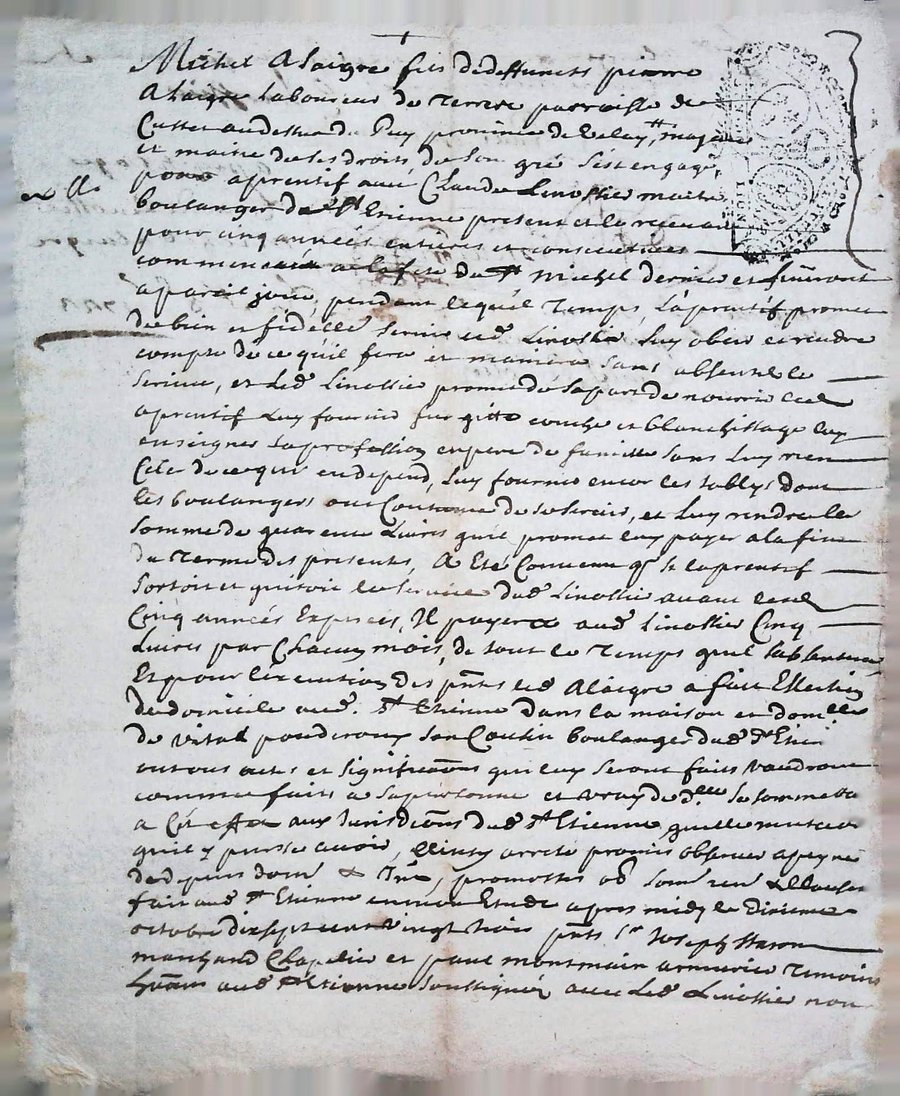 Michel Alaigre fils de deffuncts pierre
Alaigre laboureur du Terroir parroisse de
au dessus du Puy province de Velay, majeur
et maitre de ses droits, de son gré s'est engagé,
pour aprentif avec Claude Linossier maitre
boulanger de St Etienne present et le recevant
pour cinq années entières et consecutives
commencées a la fete de St Michel dernier et finiront
a pareil jour, pendant lequel Temps, l'aprentif promet
de bien et fidelle servir led Linossier luy obeir et rendre
compte de ce qu'il fera et maniera sans absenter le
service, et Led Linossier promet de sa part de nourrir led
aprentif luy fournir feu gitte couche et blanchissage luy
enseigner sa profession en pere de famille sans luy rien
Céler de ce qui en depend, luy fournir encor les tabliers dont
les boulangers ont Coutume de se servir, et luy rendre la
somme de quarente Livres qu'il promet luy payer a la fin
du Terme des presentes, A Eté Convenu q si laprentif
sortoit et quitoit le service dud Linossier avant lesd
Cinq années Expirées, Il payera aud Linossier Cinq
Livres par Chacun mois, de tout le Temps quil sabsentera
Et pour l'execution des pntes led Alaigre a fait Election
de domicile aud. St Etienne dans la maison et domlle
de Vital pouderoux son Cousin boulanger dud St Etienne
ou tous actes et significaons qui luy seront faits vaudront
comme faits a sa personne et vray de dlle se sommettant
a Cet effet aux Jurisdions dud St Etienne, quelle mutaon
quil y puisse avoir, Ainsy arreté promis observer a peyne
de depens dom & Int, promettes ob soum ren & clauses
fait aud St Etienne en mon Etude apres midy le dixieme
octobre dix sept cent vingt trois pnts Sr Joseph
marchand Chapelier et paul montmain armurier Temoins
hans aud St Etienne soussignés avec Led Linossier non